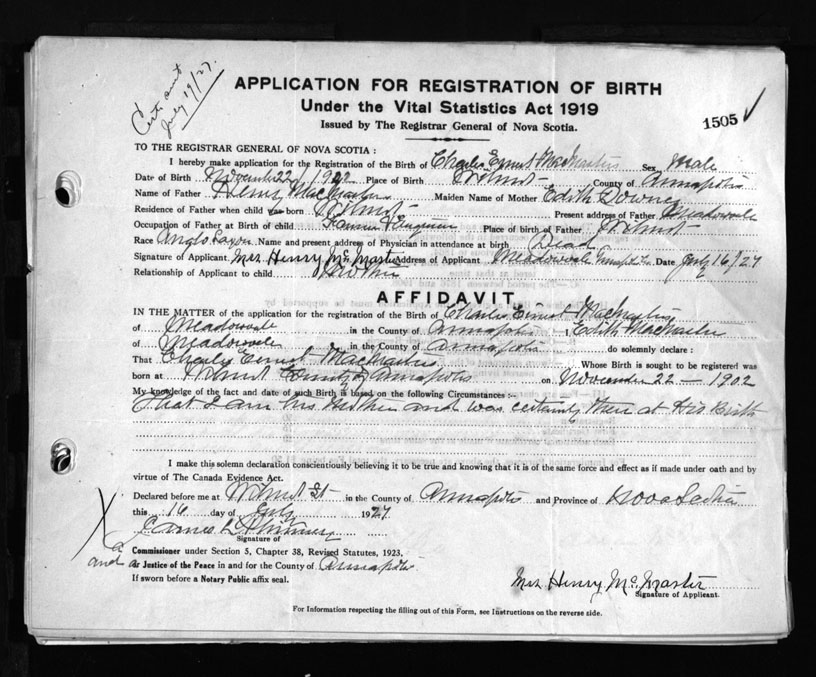 Cert. sent
July 19/27.
APPLICATION FOR REGISTRATION OF BIRTH
Under the Vital Statistics Act 1919
Issued by The Registrar General of Nova Scotia.
1505 ✓
TO THE REGISTRAR GENERAL OF NOVA SCOTIA :
I hereby make application for the Registration of the Birth of Charles Ernest MacMaster Sex Male
Date of Birth November 22/1902 Place of Birth Wilmot County of Annapolis
Name of Father Henry MacMaster Maiden Name of Mother Edith Downey
Residence of Father when child was born Wilmot Present address of Father Meadowvale
Occupation of Father at Birth of child Farmer & Engineer Place of birth of Father Wilmot
Race Anglo Saxon Name and present address of Physician in attendance at birth Dead
Signature of Applicant Mrs Henry McMaster Address of Applicant Meadowvale Annapolis Co Date July 16/27
Relationship of Applicant to child Mother
AFFIDAVIT
IN THE MATTER of the application for the registration of the Birth of Charles Ernest MacMaster
of Meadowvale in the County of Annapolis I, Edith MacMaster
of Meadowvale in the County of Annapolis do solemnly declare :
That Charles Ernest MacMaster Whose Birth is sought to be registered was
born at Wilmot County of Annapolis on November 22 – 1902
My knowledge of the fact and date of such Birth is based on the following Circumstances :–
That I am his Mother and was certainly there at His Birth
I make this solemn declaration conscientiously believing it to be true and knowing that it is of the same force and effect as if made under oath and by
virtue of The Canada Evidence Act.
Declared before me at Wilmot in the County of Annapolis and Province of Nova Scotia
this 16 day of July 1927
James Whitman
Signature of
X a Commissioner under Section 5, Chapter 38, Revised Statutes, 1923,
and a Justice of the Peace in and for the County of Annapolis
If sworn before a Notary Public affix seal.
Mrs Henry McMaster
Signature of Applicant.
For Information respecting the filling out of this Form, see Instructions on the reverse side.